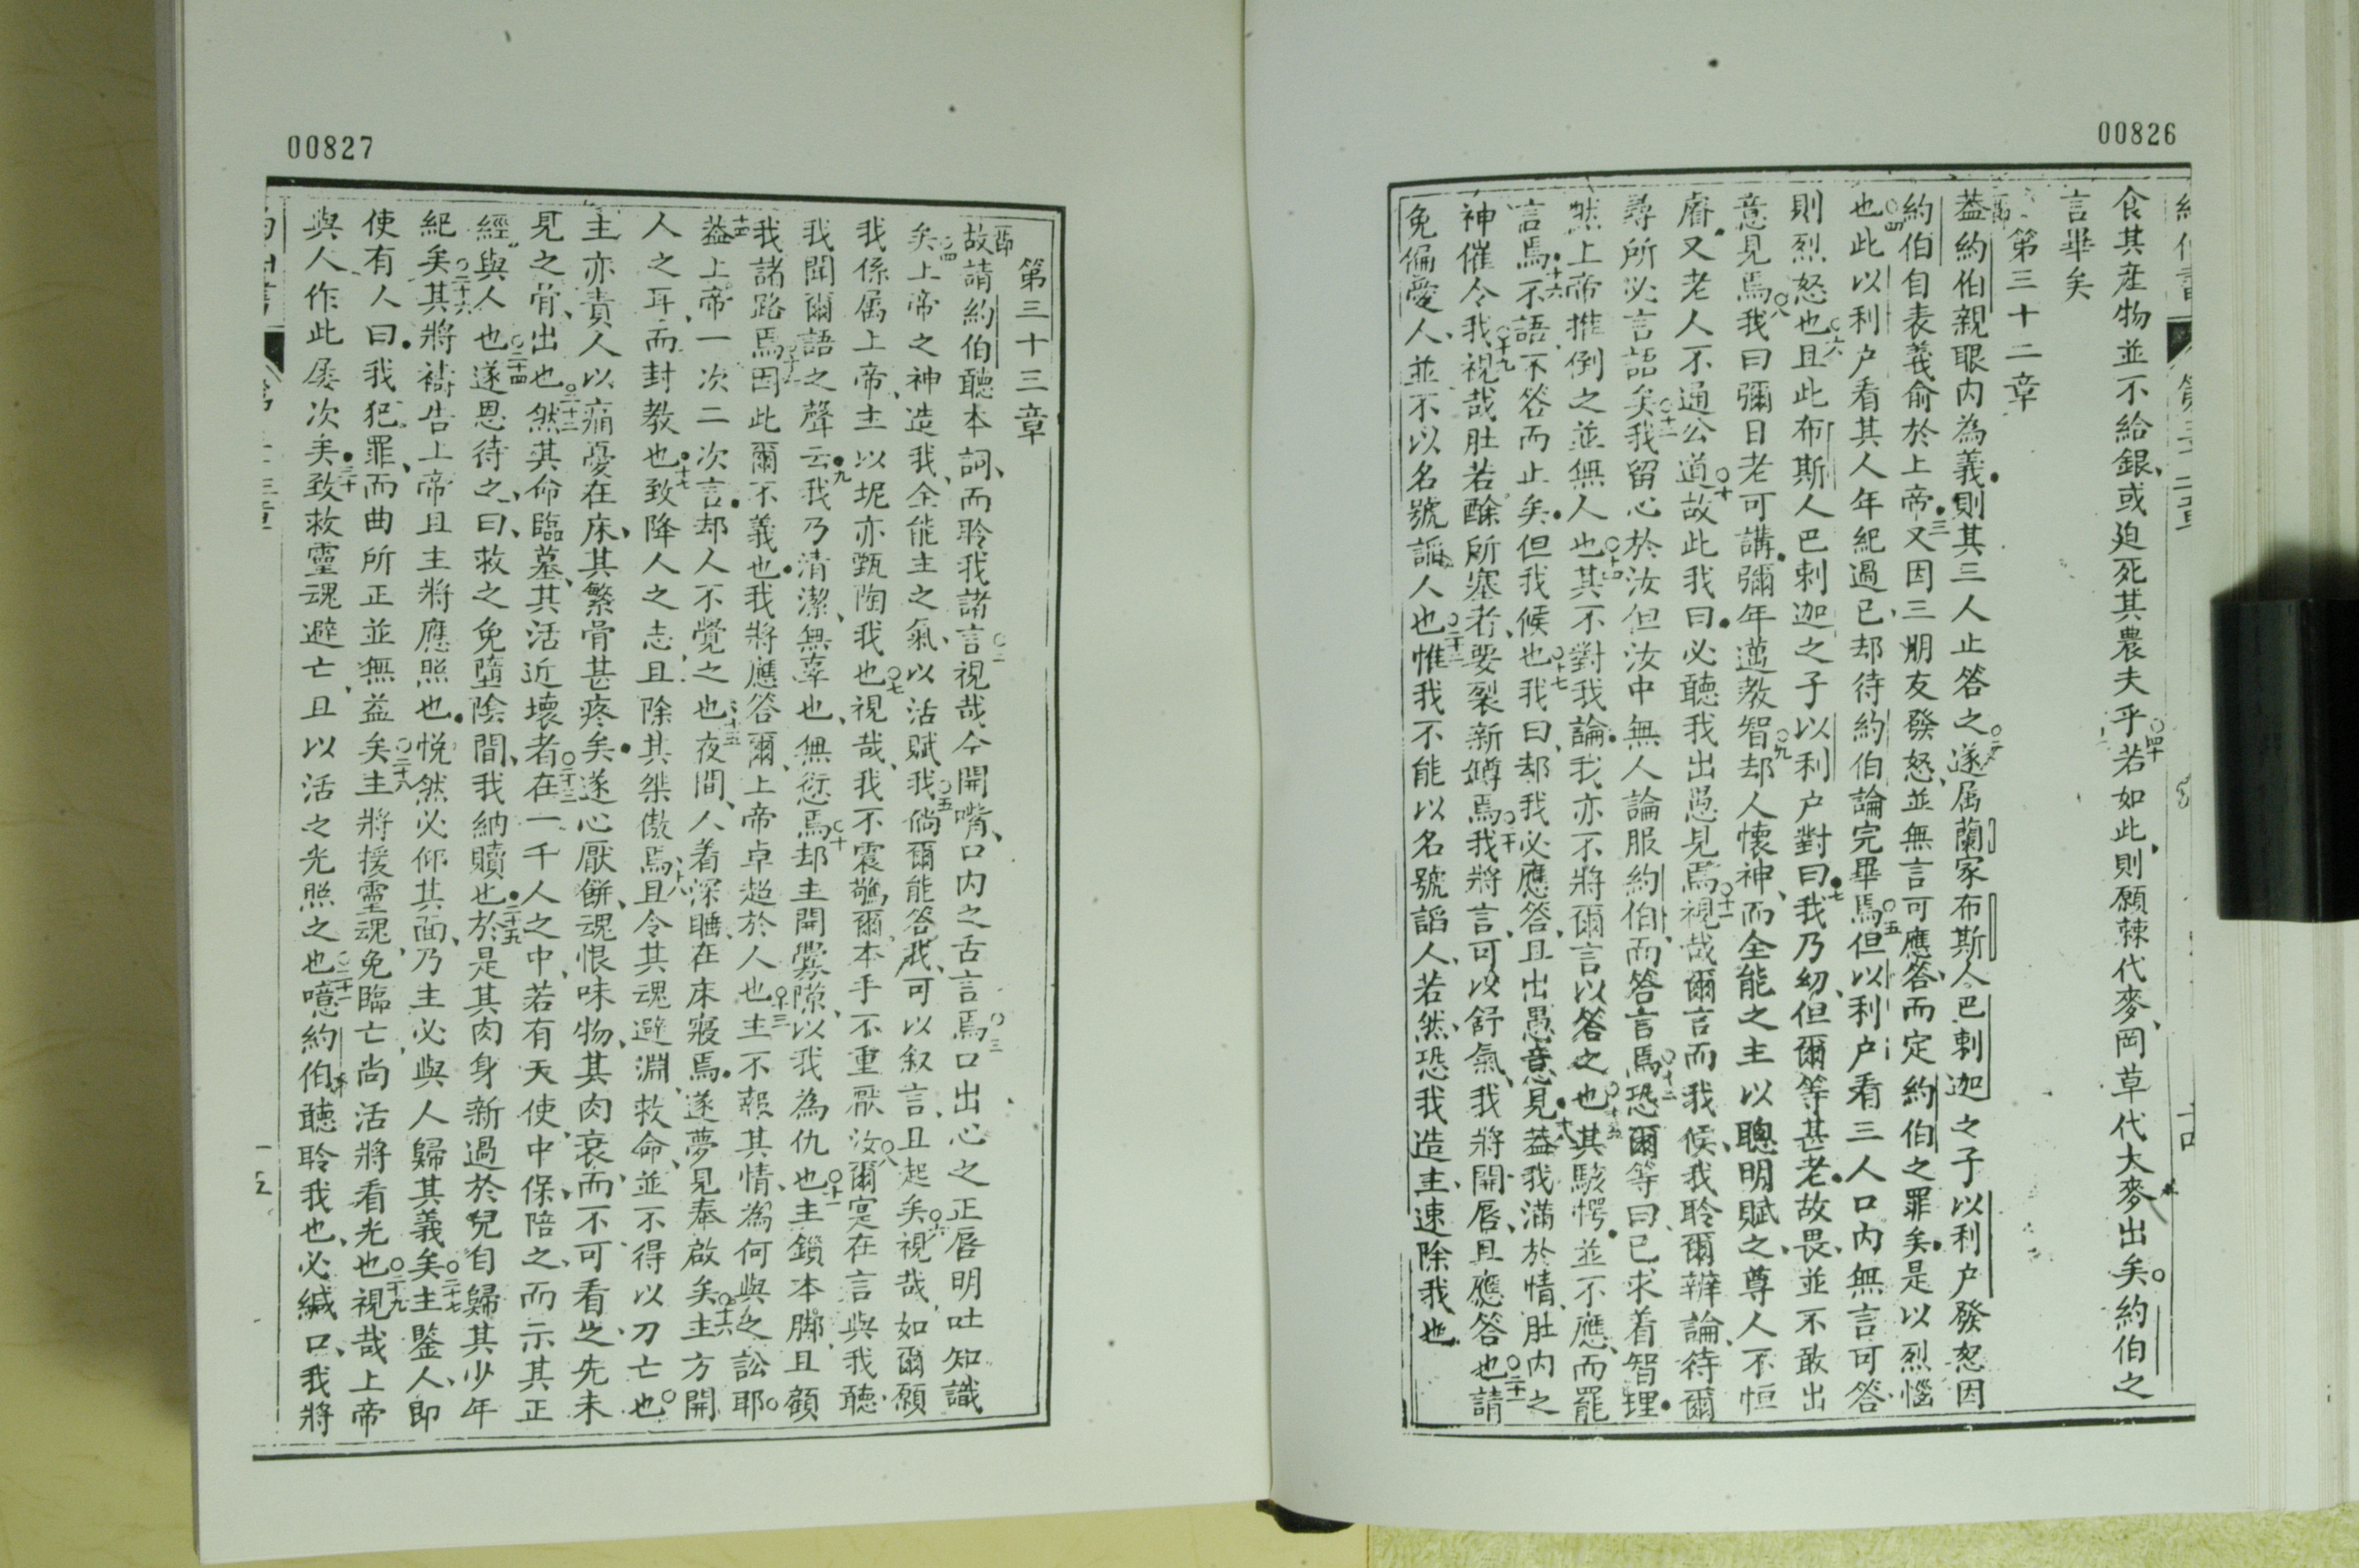 00826
食其産物並不給銀、或廹死其農夫乎○四十若如此、則願棘代麥、岡草代大麥出矣○約伯之
言畢矣
第三十二章
蓋約伯親眼内為義●則其三人止答之○二遂属蘭家布斯人巴剌迦之子以利户發怒因
約伯自表義俞於上帝●三又因三朋友發怒、並無言可應答、而定約伯之罪矣●是以烈惱
也○四此以利户看其人年紀過已、却待約伯論完畢焉○五但以利户看三人口内無言可答、
則烈怒也○六且此布斯人巴剌迦之子以利户對曰●七我乃幼、但爾等甚老●故畏、並不敢出
意見焉○八我曰彌日老可講●彌年邁教智○九却人懷神、而全能之主以聰明賦之、尊人不恒
睿●又老人不通公道○十故此我曰●必聽我出愚見焉○十一視哉爾言而我候、我聆爾辯論、待爾
尋所以言語矣○十二我留心於汝但汝中無人論服約伯、而答言焉○十三恐爾等曰已求着智理●
然上帝推倒之並無人也○十四其不對我論●我亦不將爾言以答之也○十五其駭愕●並不應、而罷
言焉●十六不語、不答而止矣●但我候也○十七我曰、却我必應答、且出愚意見●十八蓋我滿於情、肚内之
神催令我○十九視哉肚若酴所塞者、要裂新罇焉○二十我將言、可以舒氣、我將開唇、且應答也○二十一請
免偏愛人、並不以名號謟人也○二十二惟我不能以名號謟人、若然、恐我造主、速除我也
00827
第三十三章
節故請約伯聽本詞、而聆我諸言○二視哉、今開嘴、口内之舌言焉○三口出心之正唇明吐知識
矣○四上帝之神、造我、全能主之氣、以活賦我○五倘爾能答我、可以叙言、且起矣○六視哉、如爾願
我係属上帝、主以坭亦甄陶我也○七視哉、我不震驚爾、本手不重厭汝○八爾寔在言與我聽、
我聞爾語之聲云●九我乃清潔、無辜也、無愆焉○十却主開釁隙、以我為仇也○十一主鎖本脚、且顧
我諸路焉○十二因此爾不義也●我將應答爾、上帝卓超於人也○十三主不報其情、為何與之訟耶○
十四蓋上帝一次二次言●却人不覺之也○十五夜間、人着深睡、在床寢焉●遂夢見奉啟矣○十六主方開
人之耳、而封教也●十七致降人之志且除其桀傲焉○十八且令其魂避淵、救命、並不得以刀亡也○
主亦責人以痛憂在床、其繁骨甚疼矣●遂心厭餅、魂恨味物、其肉衰、而不可看之、先未
見之骨、出也○二十二然其命臨墓、其活近壞者○二十三在一千人之中、若有天使、中保、陪之、而示其正
經與人也○二十四遂恩待之、曰、救之免墮陰間、我納贖也●二十五於是其肉身新過於兒自歸其少年
紀矣○二十六其將禱告上帝且主將應照也●悅然必仰其面、乃主必與人歸其義矣○二十七主鑒人、即
使有人曰●我犯罪、而曲所正並無益矣○二十八主將援靈魂、免臨亡、尚活將看光也○二十九視哉上帝
與人作此屡次矣●三十致救靈魂避亡、且以活之光照之也○三十一噫約伯聽聆我也、必緘口、我將